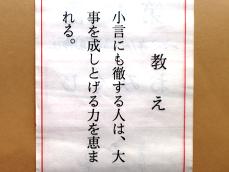 教え
小言にも徹する人は、大
事を成しとげる力を恵ま
れる。